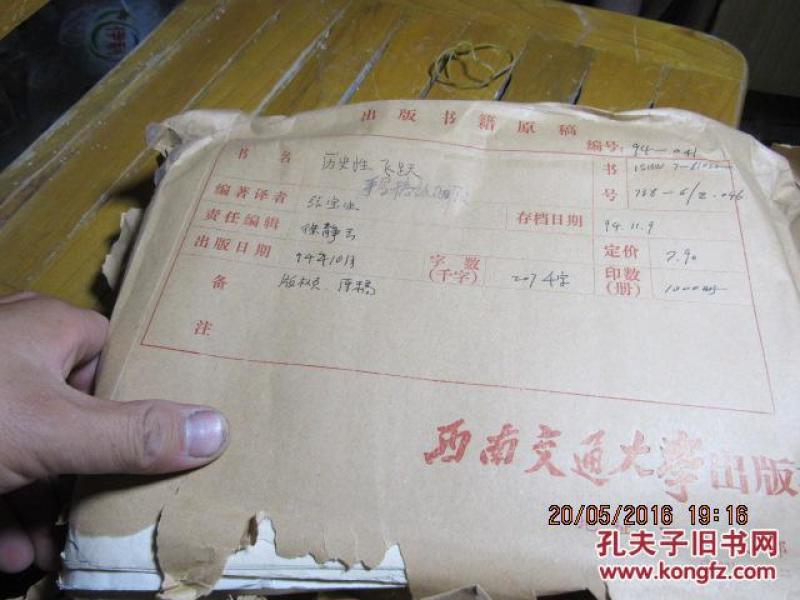 出版书籍原稿
编号: 94—041
书名 历史性飞跃
书号 ISBN 7-81022
738-6/Z.046
编著译者
存档日期 94.11.9
责任编辑
定价 7.90
出版日期 94年10月
字数(千字) 207千字
印数(册) 1000册
备注 版权页. 原稿
西南交通大学出版
20/05/2016 19:16
孔夫子旧书网
www.kongfz.com